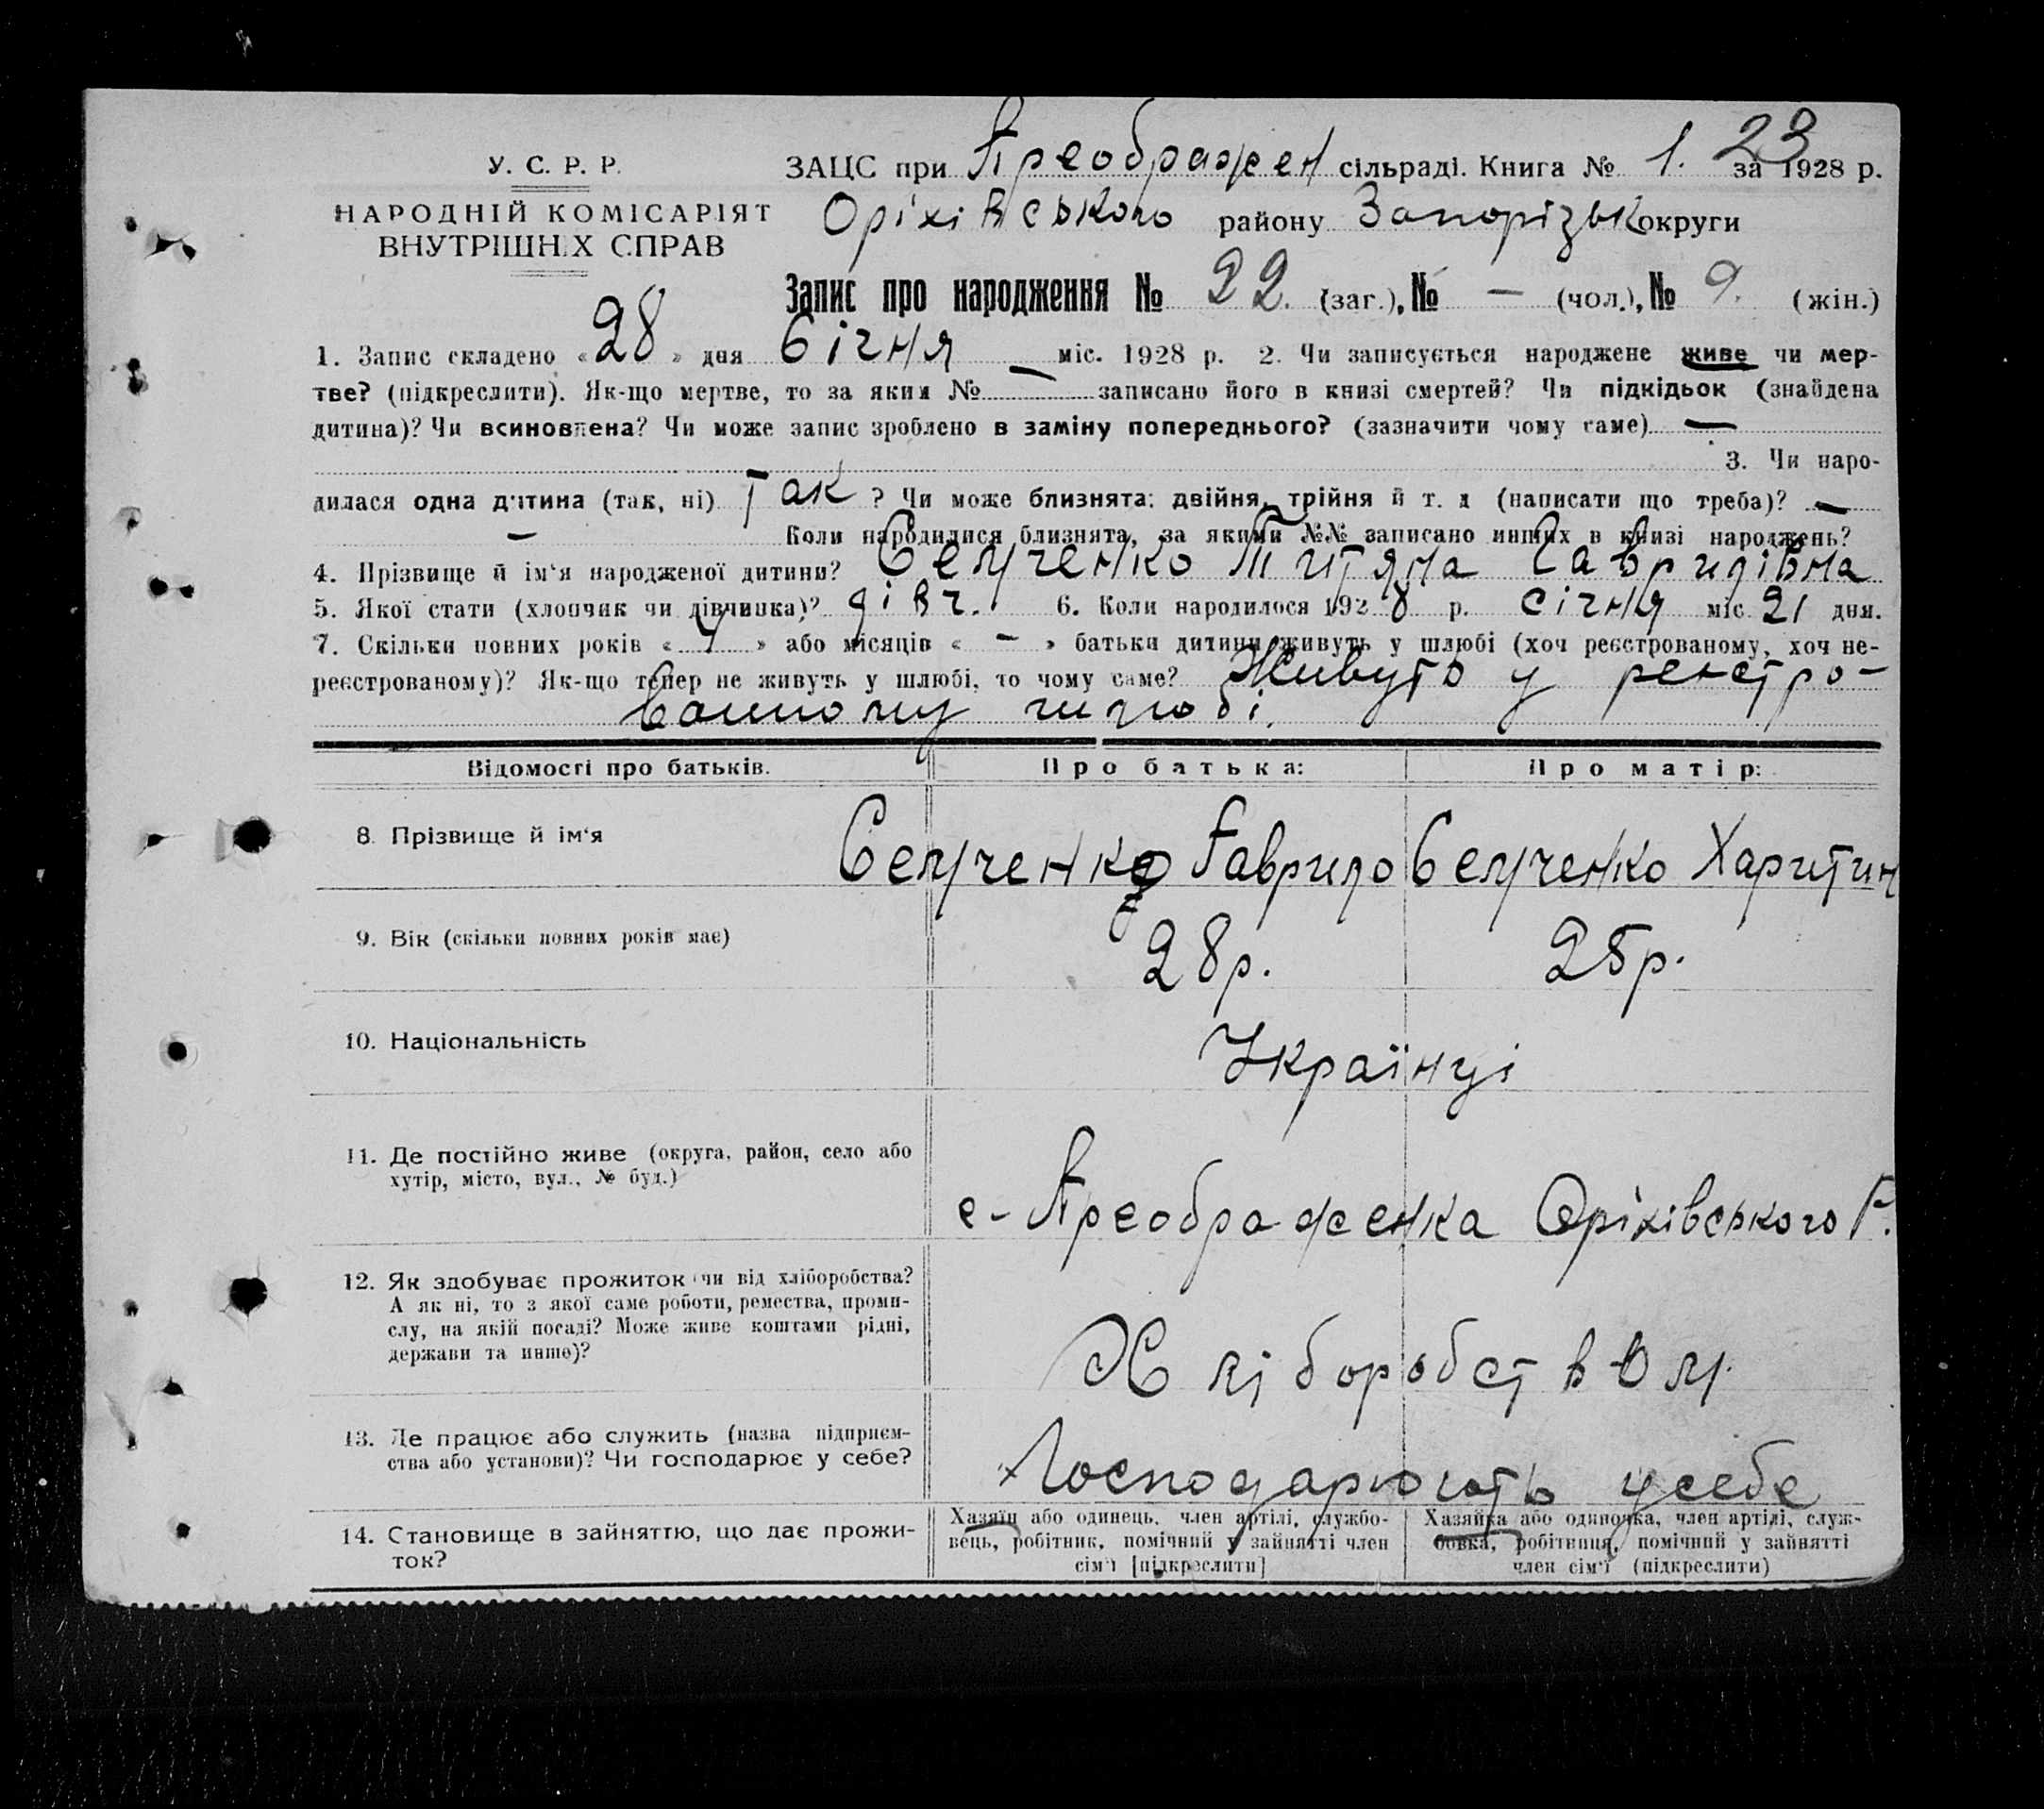 23
У. С. Р. Р. ЗАЦС при Преображен сільраді. Книга № 1. за 1928 р.
НАРОДНІЙ КОМІСАРІЯТ Оріхівського району Запорізьк округи
ВНУТРІШНІХ СПРАВ
Запис про народження № 22. (заг.), № — (чол.), № 9. (жін.)
1. Запис складено «28» дня Січня міс. 1928 р. 2. Чи записується народжене живе чи мер-
тве? (підкреслити). Як-що мертве, то за яким № — записано його в книзі смертей? Чи підкідьок (знайдена
дитина)? Чи всиновлена? Чи може запис зроблено в заміну попереднього? (зазначити чому саме) —
3. Чи наро-
дилася одна дитина (так, ні) Так ? Чи може близнята: двійня, трійня й т. д (написати що треба)? —
— Коли народилися близнята, за якими №№ записано инших в книзі народжень?
4. Прізвище й ім'я народженої дитини? Семченко Титяна Гаврилівна
5. Якої стати (хлопчик чи дівчинка)? дівч. 6. Коли народилося 1928 р. січня міс. 21 дня.
7. Скільки повних років « » або місяців « — » батьки дитини живуть у шлюбі (хоч реєстрованому, хоч не-
реєстрованому)? Як-що тепер не живуть у шлюбі, то чому саме? Живуть у реєстро-
ванному шлюбі.
Відомості про батьків. Про батька: Про матір:
8. Прізвище й ім'я Семченко Гаврило Семченко Харитин
9. Вік (скільки повних років має) 28 р. 25 р.
10. Національність Українці
11. Де постійно живе (округа, район, село або
хутір, місто, вул., № буд.)
с- Преображенка Оріхівського Р.
12. Як здобуває прожиток (чи від хліборобства?
А як ні, то з якої саме роботи, ремества, проми-
слу, на якій посаді? Може живе коштами рідні,
держави та инше)?
Хліборобством.
13. Де працює або служить (назва підприєм-
ства або установи)? Чи господарює у себе?
Господарюють у себе
14. Становище в зайняттю, що дає прожи-
ток?
Хазяїн або одинець, член артілі, службо-
вець, робітник, помічний у зайнятті член
сім'ї [підкреслити]
Хазяйка або одиночка, член артілі, служ-
бовка, робітниця, помічний у зайнятті
член сім'ї (підкреслити)